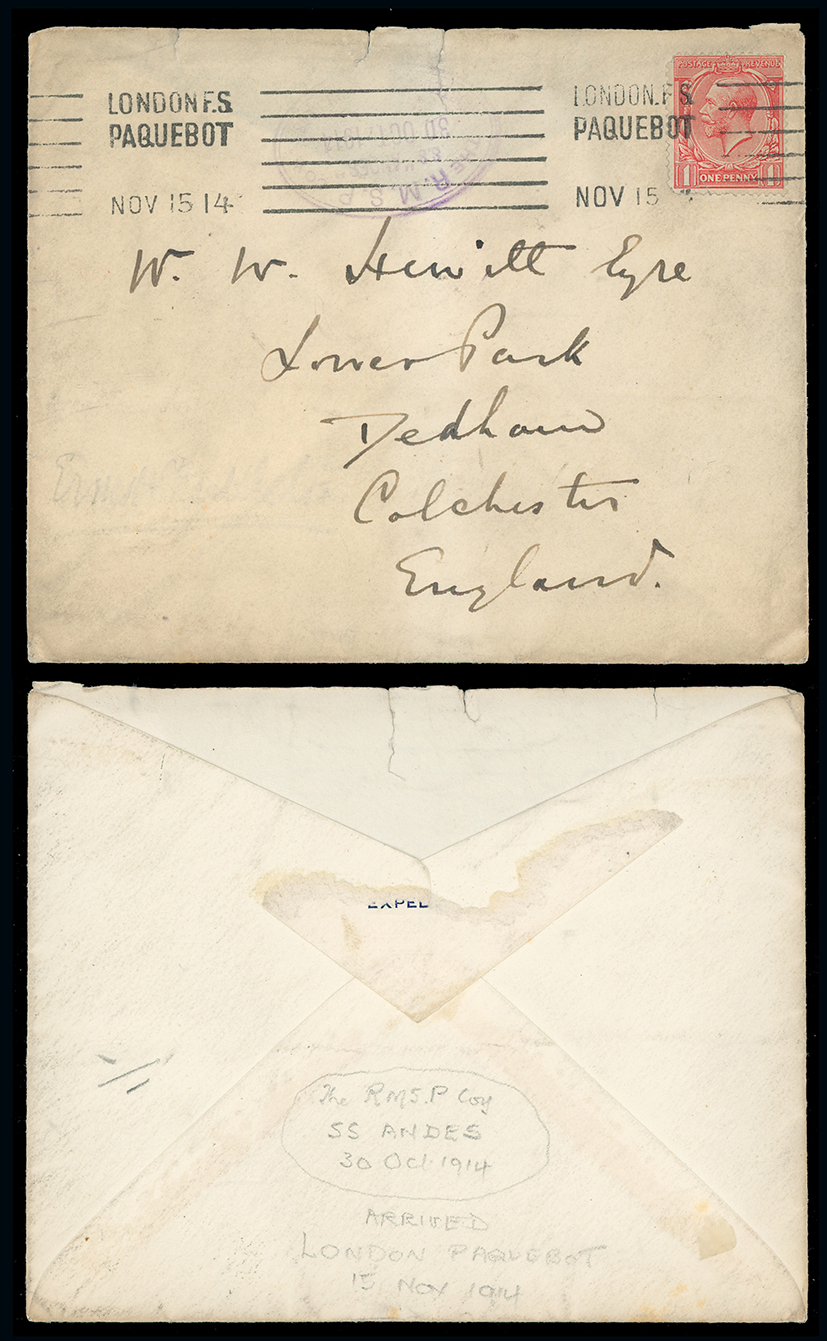 LONDON F.S.
PAQUEBOT
NOV 15 14
LONDON.F.S
PAQUEBOT
NOV 15
POSTAGE REVENUE
1 ONE PENNY 1
THE R.M.S.P.
30 OCT 1914
W. W. Hewitt Eyre
Lower Park
Dedham
Colchester
England.
EXPEL
The R M S.P Coy
SS ANDES
30 Oct. 1914
ARRIVED
LONDON PAQUEBOT
15 Nov 1914